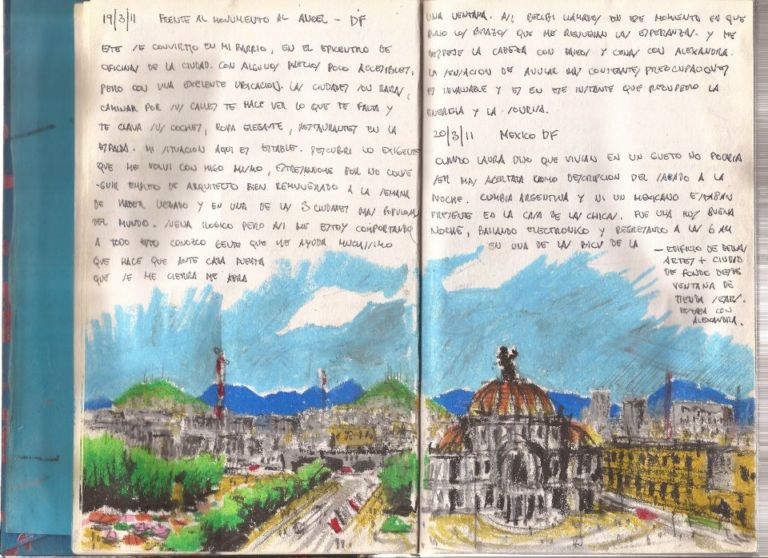 19/3/11 FRENTE AL MONUMENTO AL ANGEL - DF
ESTE SE CONVIRTIO EN MI BARRIO, EN EL EPICENTRO DE
OFICINAS DE LA CIUDAD. CON ALGUNOS PRECIOS POCO ACCESIBLES,
PERO CON UNA EXCELENTE UBICACION. LAS CIUDADES SON RARAS,
CAMINAR POR SUS CALLES TE HACE VER LO QUE TE FALTA Y
TE CLAVA SUS COCHES, ROPA ELEGANTE, RESTAURANTES EN LA
ESPALDA. MI SITUACION AQUI ES ESTABLE. DESCUBRI LO EXIGENTE
QUE ME VOLVI CON MIGO MISMO, ESTRESANDOME POR NO CONSE
-GUIR EMPLEO DE ARQUITECTO BIEN REMUNERADO A LA SEMANA
DE HABER LLEGADO Y EN UNA DE LAS 3 CIUDADES MAS POPULOSAS
DEL MUNDO. SUENA ILOGICO PERO ASI ME ESTOY COMPORTANDO
A TODO ESTO CONOZCO GENTE QUE ME AYUDA MUCHISIMO
QUE HACE QUE ANTE CADA PUERTA
QUE SE ME CIERRA ME ABRA
UNA VENTANA. ASI RECIBI LLAMADOS EN ESE MOMENTO EN QUE
BAJO LOS BRAZOS QUE ME RENUEVAN LAS ESPERANZAS. Y ME
DESPEJE LA CABEZA CON PASEOS Y CENAS CON ALEXANDRA.
LA SENSACION DE ANULAR MIS CONSTANTES PREOCUPACIONES
ES INVALUABLE Y ES EN ESE INSTANTE QUE RECUPERO LA
ENERGIA Y LA SONRISA.
20/3/11 MEXICO DF
CUANDO LAURA DIJO QUE VIVIAN EN UN GUETO NO PODRIA
SER MAS ACERTADA COMO DESCRIPCION DEL SABADO A LA
NOCHE. CUMBIA ARGENTINA Y NI UN MEXICANO ESTABAN
PRESENTE EN LA CASA DE LAS CHICAS. FUE UNA MUY BUENA
NOCHE, BAILANDO ELECTRONICO Y REGRESANDO A LAS 6 AM
EN UNA DE LAS BICIS DE LA
- EDIFICIO DE BELLAS
ARTES + CIUDAD
DE FONDO DESDE
VENTANA DE
TIENDA SEARS.
ESTABA CON
ALEXANDRA.